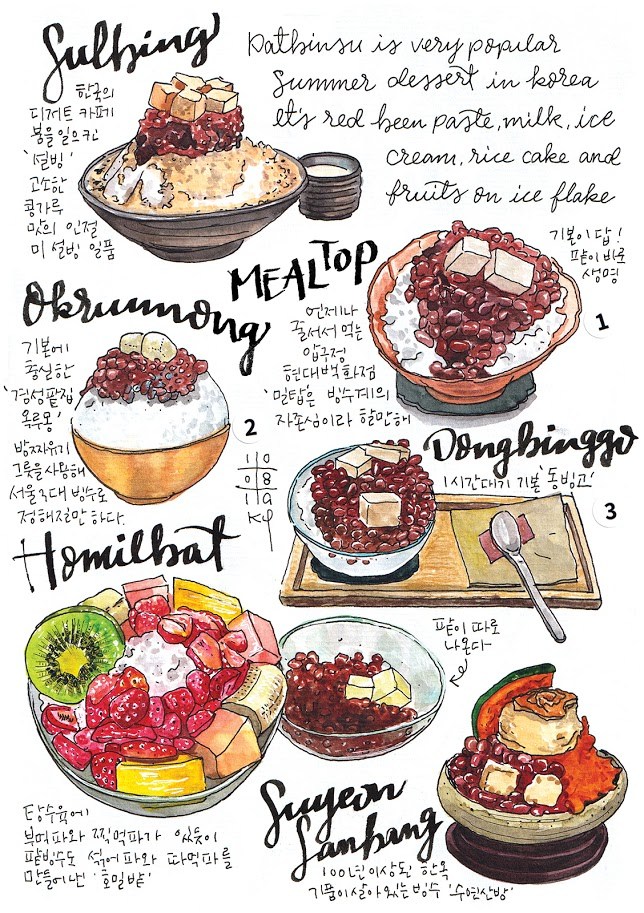 Sulbing
Patbinsu is very popular
Summer dessert in korea
It's red been paste, milk, ice
cream, rice cake and
fruits on ice flake
한국의
디저트 카페
붐을 일으킨
'설빙'
고소한
콩가루
맛의 인절
미 설빙 일품
MEALTOP
기본이 답!
팥이 바로
생명
1
언제나
줄서서 먹는
압구정
현대백화점
'밀탑'은 빙수계의
자존심이라 할만해
Okrumong
기본에
충실한
'경성팥집
옥루몽'
방짜유기
그릇을 사용해
서울 3대 빙수로
정해질만 하다.
2
10
08
19
Dongbinggo
1시간대기 기본 '동빙고'
3
Homilbat
팥이 따로
나온다
탕수육에
부먹파와 찍먹파가 있듯이
팥빙수도 섞어파와 따먹파를
만들어낸 '호밀밭'
Suyeon
Sanbang
100년이상된 한옥
기품이 살아있는 빙수 '수연산방'